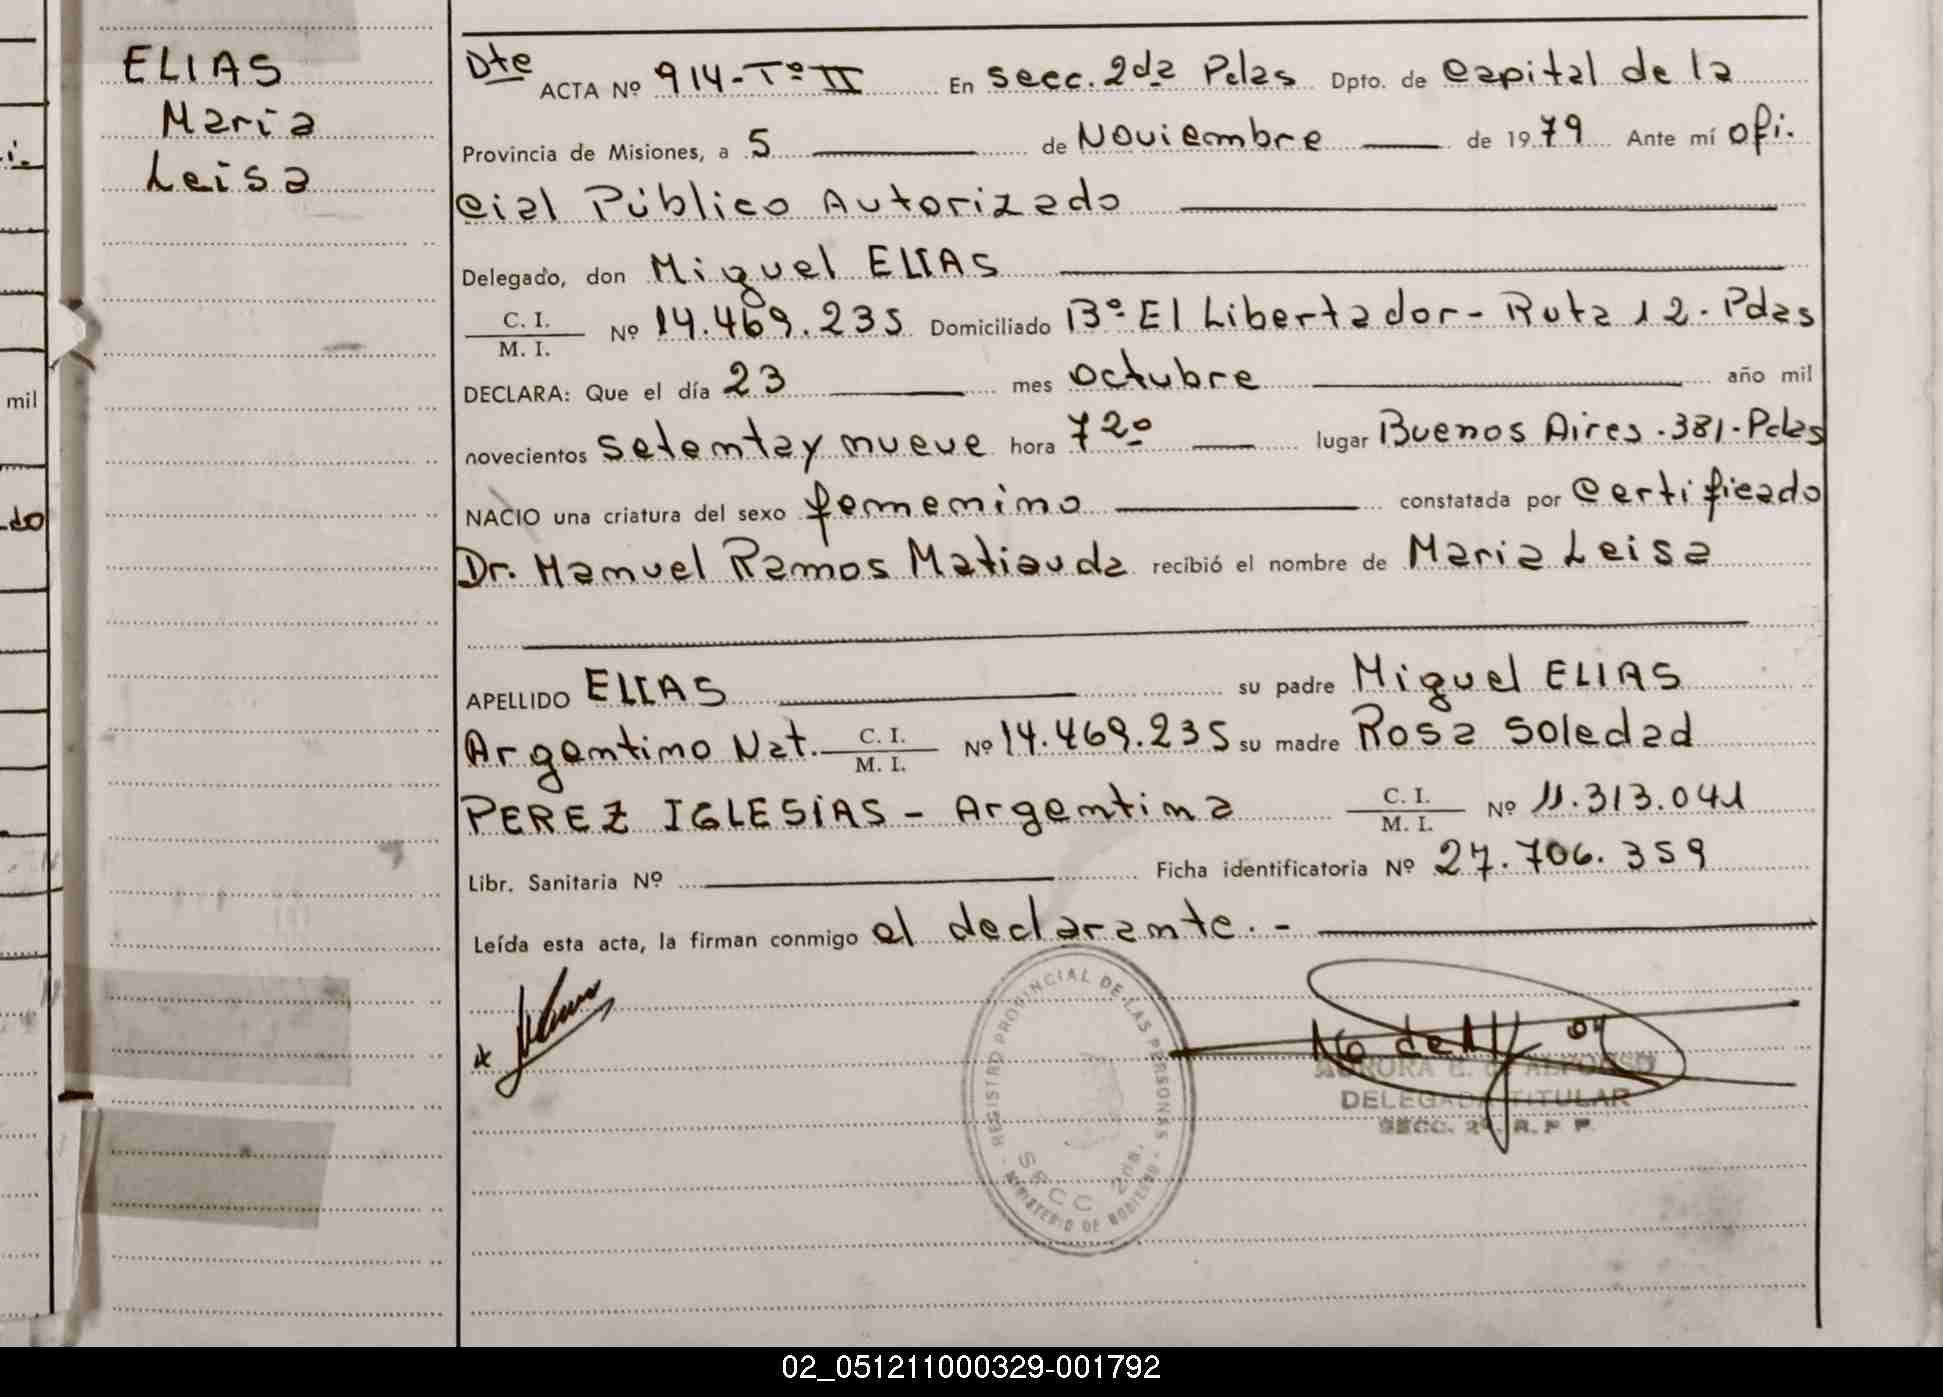 ELIAS
Maria
Leisa
Dte ACTA Nº 914-Tº II En secc. 2da Pdas Dpto. de Capital de la
Provincia de Misiones, a 5 de Noviembre de 1979 Ante mí ofi.
cial Público Autorizado
Delegado, don Miguel ELIAS
C. I. / M. I. Nº 14.469.235 Domiciliado Bº El Libertador - Ruta 12 - Pdas
DECLARA: Que el día 23 mes octubre año mil
novecientos setenta y nueve hora 7 20 lugar Buenos Aires . 381 - Pdas
NACIO una criatura del sexo femenino constatada por Certificado
Dr. Manuel Ramos Matiauda recibió el nombre de Maria Leisa
APELLIDO ELIAS su padre Miguel ELIAS
Argentino Nat. C. I. / M. I. Nº 14.469.235 su madre Rosa Soledad
PEREZ IGLESIAS - Argentina C. I. / M. I. Nº 11.313.041
Libr. Sanitaria Nº Ficha identificatoria Nº 27.706.359
Leída esta acta, la firman conmigo el declarante. -
REGISTRO PROVINCIAL DE LAS PERSONAS
SECC 2da.
MINISTERIO DE GOBIERNO
AURORA E. de ALFONSO
DELEGADA TITULAR
SECC. 2ª. R. P. P.
mil
do
02_051211000329-001792